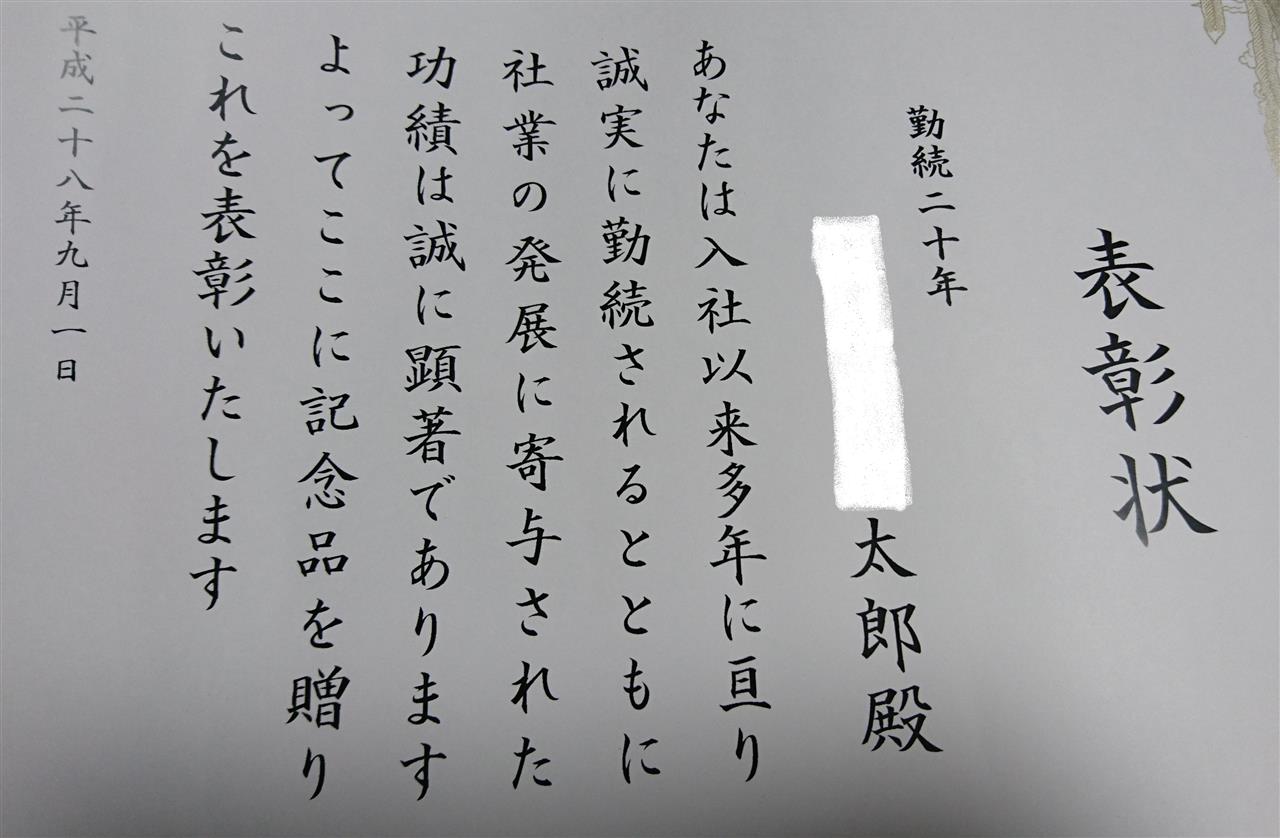 表彰状
勤続二十年
太郎殿
あなたは入社以来多年に亘り
誠実に勤続されるとともに
社業の発展に寄与された
功績は誠に顕著であります
よってここに記念品を贈り
これを表彰いたします
平成二十八年九月一日